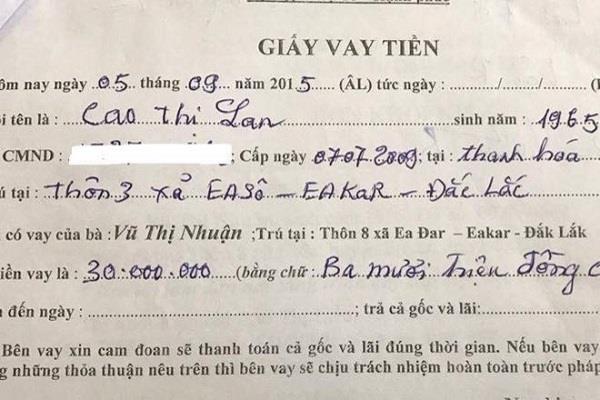 GIẤY VAY TIỀN
ôm nay ngày ..05.. tháng .09... năm 2015 (ÂL) tức ngày : ........../......../........(
i tên là : Cao Thị Lan sinh năm : 1965
CMND : ; Cấp ngày 07.07.2009; tại : thanh hóa
ú tại : thôn 3 xã EASÔ – EAKaR – Đắc Lắc
có vay của bà : Vũ Thị Nhuận ;Trú tại : Thôn 8 xã Ea Đar – Eakar - Đắk Lắk
iền vay là : 30.000.000 (bằng chữ Ba mươi Triệu đồng c
đến ngày : ; trả cả gốc và lãi:
Bên vay xin cam đoan sẽ thanh toán cả gốc và lãi đúng thời gian. Nếu bên vay
g những thỏa thuận nêu trên thì bên vay sẽ chịu trách nhiệm hoàn toàn trước pháp